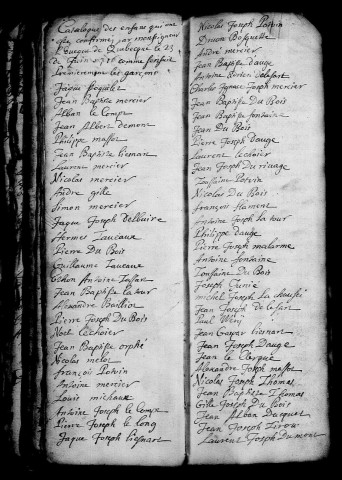 Catalogue des enfans qui ont
esté confirmez par monseigneur
l'Eveque de Quebecque le 23
de Juin 1716 comme sensuit
premierement les garçons
Jaque poquelet
Jean Baptiste mercier
Alban le Compe
Jean Albert demont
Philippe massot
Jean Baptiste liesnart
Laurent mercier
Nicolas mercier
Andre gille
Simon mercier
Jaque Joseph Delluire
Hermes Taucaux
Pierre Du Bois
Guillaume Taucaux
Jean Baptiste la tour
Alexandre Baillioz
Pierre Joseph Du Bois
Noel lechoier
Jean Baptiste orphé
Nicolas melot
François Potvin
Antoine mercier
Louis michaux
Antoine Joseph le Compe
Pierre Joseph le long
Jaque Joseph liesnart
Nicolas Joseph Potvin
Bosquette
André mercier
Jean Baptiste d'auge
Antoine
Charle Ignace Joseph mercier
Jean Baptiste Du Bois
Jean Baptiste fontaine
Jean Du Bois
Pierre Joseph d'auge
Laurent lechoier
Jean Joseph Du rivage
Toussaint Potvin
Nicolas Du Bois
François flament
Antoine Joseph la tour
Philippe dauge
Pierre Joseph malarme
Antoine fontaine
Du Bois
Joseph
michel Joseph La chaussé
Jean Joseph
Paul
Jean Gaspar liesnart
Jean Joseph Dauge
Jean le Clerque
Alexandre Joseph massot
Nicolas Joseph Thomas
Jean Baptiste Thomas
Gille Joseph Du Bois
Jean Alban Dacquet
Jean Joseph Tirou
Laurent Joseph Du mont